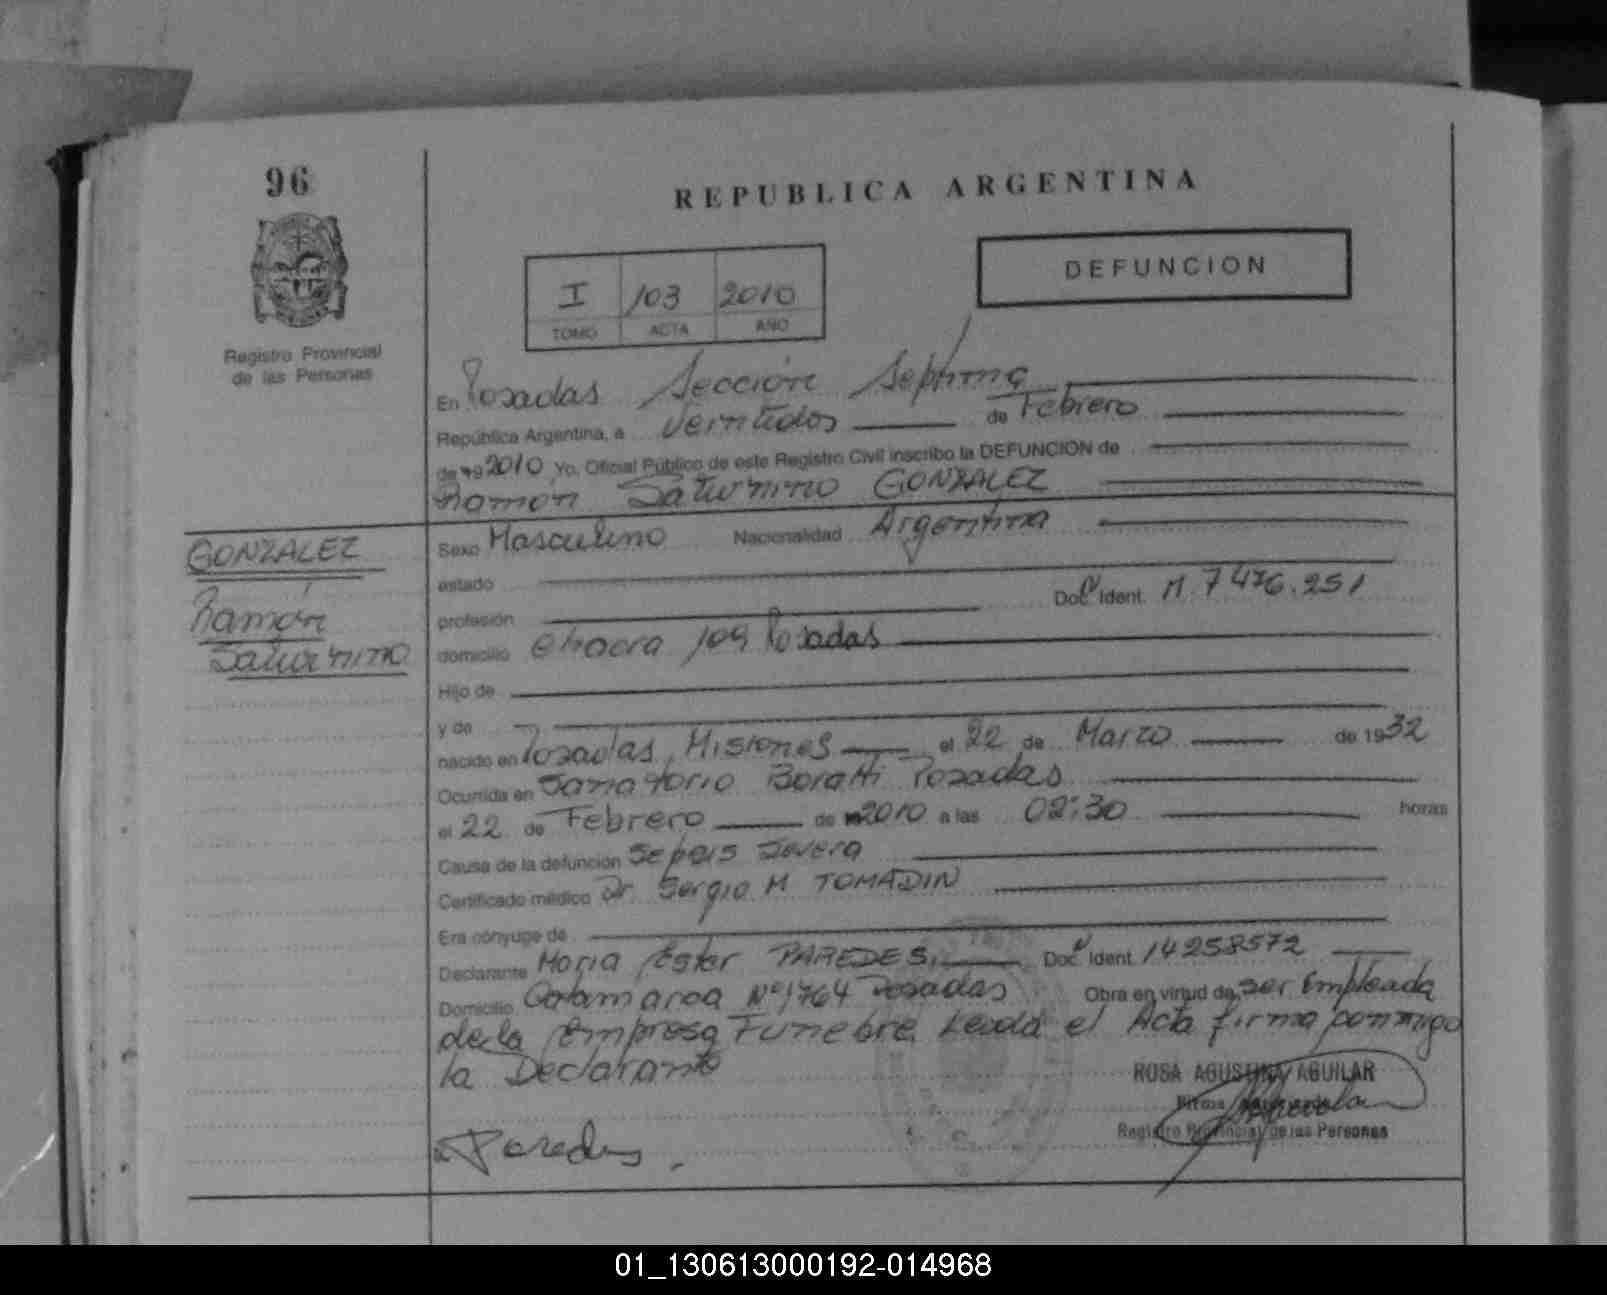 96
REPUBLICA ARGENTINA
DEFUNCION
I 103 2010
TOMO ACTA AÑO
Registro Provincial
de las Personas
En Posadas Sección Septima
República Argentina, a Veintidos de Febrero
de 19 2010 Yo, Oficial Público de este Registro Civil inscribo la DEFUNCION de
Ramon Saturnino GONZALEZ
GONZALEZ
Ramón
Saturnino
Sexo Masculino Nacionalidad Argentina
estado
profesión Doc Ident. M 7476.251
domicilio Chacra 109 Posadas
Hijo de
y de
nacido en Posadas, Misiones el 22 de Marzo de 1932
Ocurrida en Sanatorio Boratti Posadas
el 22 de Febrero de 2010 a las 02:30 horas
Causa de la defunción Sepsis Severa
Certificado médico Dr. Sergio M TOMADIN
Era cónyuge de
Declarante Maria Ester PAREDES, Doc Ident. 14258572
Domicilio Catamarca Nº 1764 Posadas Obra en virtud de ser Empleada
de la Empresa Funebre Leida el Acta firma conmigo
la Declarante
ROSA AGUSTINA AGUILAR
Firma
Registro Provincial de las Personas
Paredes.
01_130613000192-014968